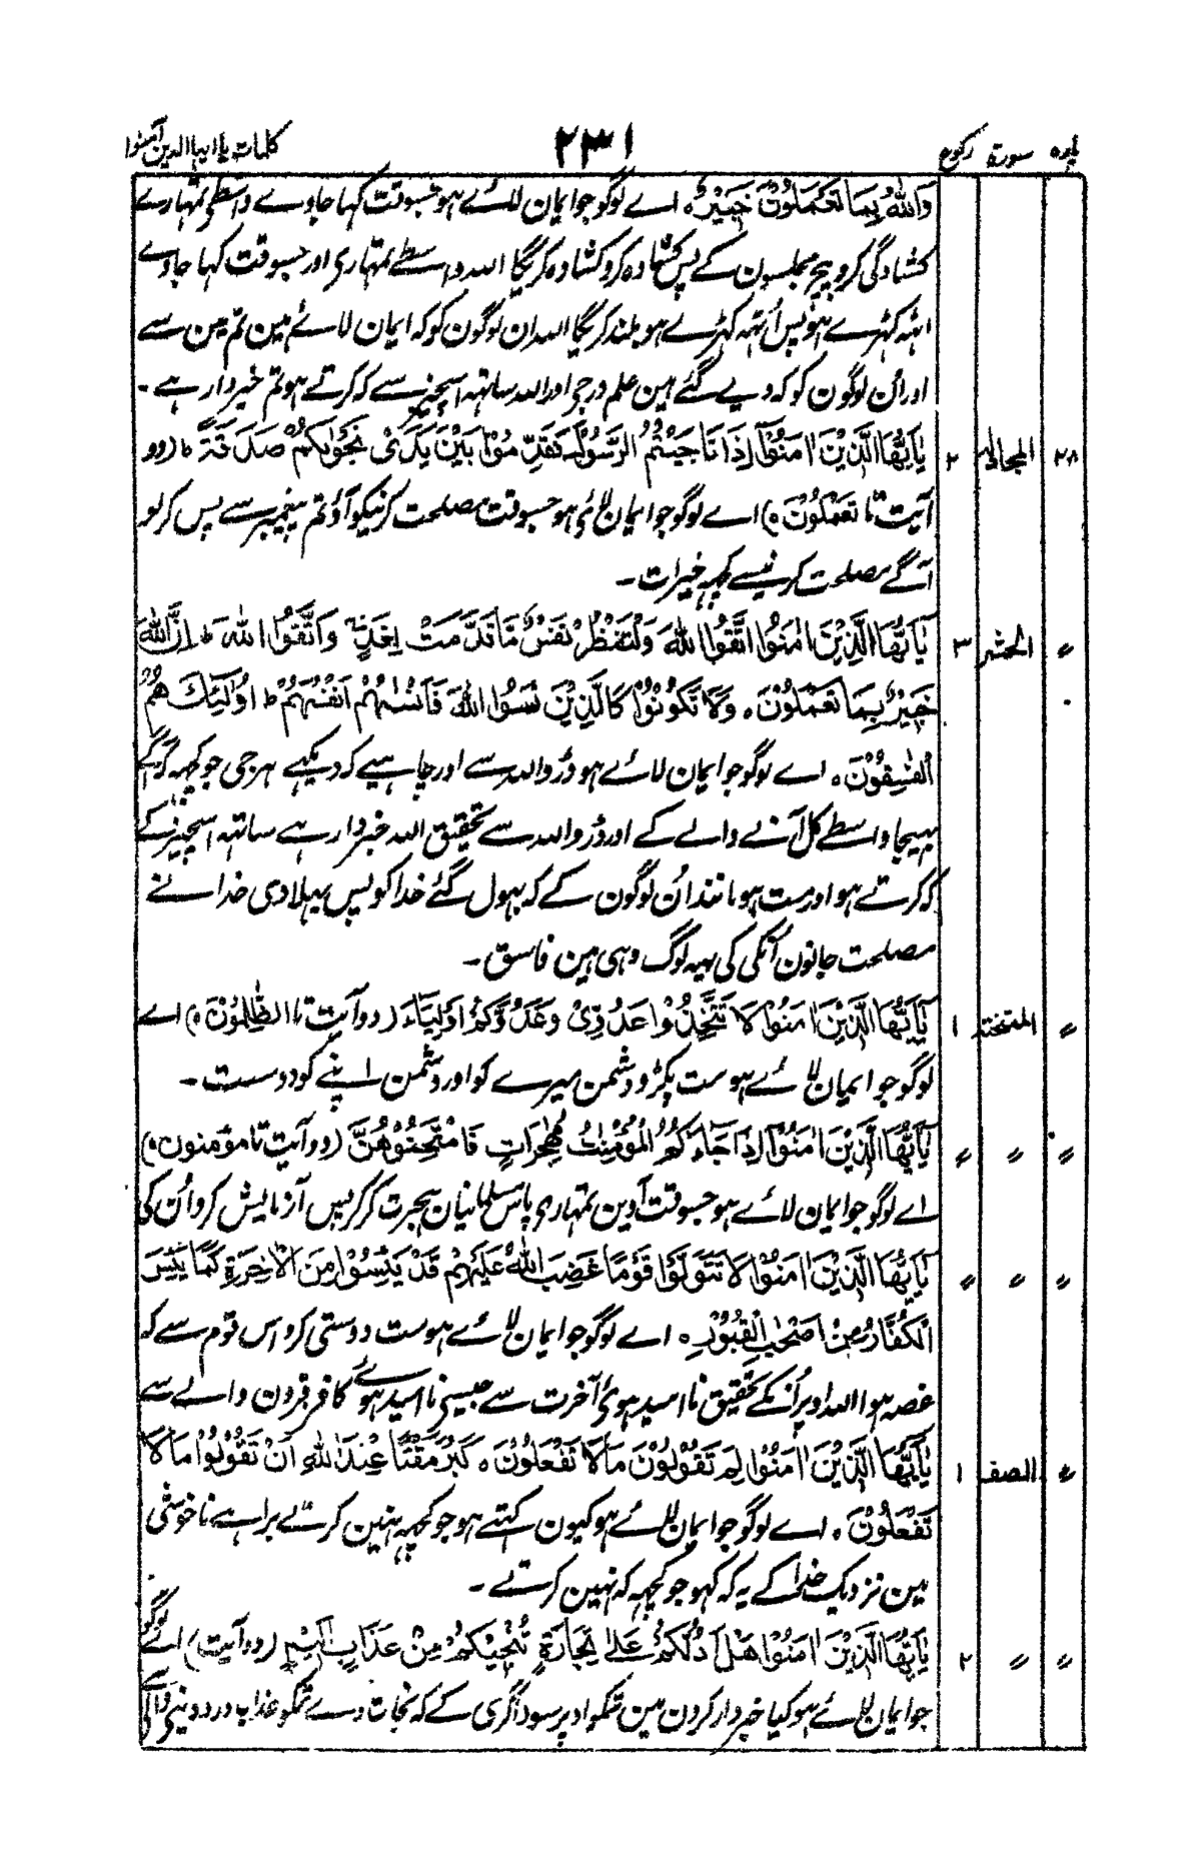 پارہ سورۃ رکوع ۲۳۱ کلمات یا ایہا الذین آمنوا
وَاللّٰهُ بِمَا تَعْمَلُوْنَ خَبِيْرٌ ۰ اے لوگو جو ایمان لائے ہو جسوقت کہا جاوے واسطے تمہارے
کشادگی کرو بیچ مجلسون کے پس کشادہ کرو کشادہ کریگا اللہ واسطے تمہاری اور جسوقت کہا جاوے
اٹہہ کہڑے ہو پس اُٹہہ کہڑے ہو بلند کریگا اللہ ان لوگون کو کہ ایمان لائے ہین تم مین سے
اور اُن لوگون کو کہ دیے گئے ہین علم درجے اور اللہ ساتہہ اسچیز سے کہ کرتے ہو تم خبردار ہے ۔
۲۸ المجادلہ ۲ يٰاَيُّهَا الَّذِيْنَ اٰمَنُوْٓا اِذَا نَاجَيْتُمُ الرَّسُوْلَ فَقَدِّمُوْا بَيْنَ يَدَىْ نَجْوٰىكُمْ صَدَقَةً ط (دو
آیت تا تَعْمَلُوْنَ ۰) اے لوگو جو ایمان لائی ہو جسوقت مصلحت کرنیکو آؤ تم پیغمبر سے پس کر لو
آگے مصلحت کرنیسے کچہہ خیرات ۔
〃 الحشر ۳ يٰاَيُّهَا الَّذِيْنَ اٰمَنُوا اتَّقُوا اللّٰهَ وَلْتَنْظُرْ نَفْسٌ مَّا قَدَّمَتْ لِغَدٍ ۚ وَاتَّقُوا اللّٰهَ ط اِنَّ اللّٰهَ
خَبِيْرٌۢ بِمَا تَعْمَلُوْنَ ۰ وَلَا تَكُوْنُوْا كَالَّذِيْنَ نَسُوا اللّٰهَ فَاَنْسٰىهُمْ اَنْفُسَهُمْ ط اُولٰٓئِكَ هُمُ
الْفٰسِقُوْنَ ۰ اے لوگو جو ایمان لائے ہو ڈرو اللہ سے اور چاہیے کہ دیکہے ہر جی جو کچہہ کہ آگے
بہیجا واسطے کل آنے والے کے اور ڈرو اللہ سے تحقیق اللہ خبردار ہے ساتہہ اسچیز کے
کہ کرتے ہو اور مت ہو مانند اُن لوگون کے کہ بہول گئے خدا کو پس بہلا دی خدا نے
مصلحت جانون اُنکی کی یہہ لوگ وہی ہین فاسق ۔
〃 الممتحنہ ۱ يٰٓاَيُّهَا الَّذِيْنَ اٰمَنُوْا لَا تَتَّخِذُوْا عَدُوِّىْ وَعَدُوَّكُمْ اَوْلِيَآءَ (دو آیت تا الظّٰلِمُوْنَ ۰) اے
لوگو جو ایمان لائے ہو مت پکڑو دشمن میرے کو اور دشمن اپنے کو دوست ۔
〃 〃 〃 يٰٓاَيُّهَا الَّذِيْنَ اٰمَنُوْٓا اِذَا جَآءَكُمُ الْمُؤْمِنٰتُ مُهٰجِرَاتٍ فَامْتَحِنُوْهُنَّ (دو آیت تا مؤمنون ۰)
اے لوگو جو ایمان لائے ہو جسوقت آوین تمہاری پاس مسلمانیان ہجرت کر کر پس آزمایش کرو اُن کی
〃 〃 〃 يٰٓاَيُّهَا الَّذِيْنَ اٰمَنُوْا لَا تَتَوَلَّوْا قَوْمًا غَضِبَ اللّٰهُ عَلَيْهِمْ قَدْ يَئِسُوْا مِنَ الْاٰخِرَةِ كَمَا يَئِسَ
الْكُفَّارُ مِنْ اَصْحٰبِ الْقُبُوْرِ ۰ اے لوگو جو ایمان لائے ہو مت دوستی کرو اس قوم سے کہ
غصہ ہوا اللہ اوپر اُنکے تحقیق نا امید ہوئی آخرت سے جیسے نا امید ہوئے کافر قبرون والے سے
〃 الصف ۱ يٰٓاَيُّهَا الَّذِيْنَ اٰمَنُوْا لِمَ تَقُوْلُوْنَ مَا لَا تَفْعَلُوْنَ ۰ كَبُرَ مَقْتًا عِنْدَ اللّٰهِ اَنْ تَقُوْلُوْا مَا لَا
تَفْعَلُوْنَ ۰ اے لوگو جو ایمان لائے ہو کیون کہتے ہو جو کچہہ نہین کرتے بڑا ہے ناخوشی
مین نزدیک خدا کے یہ کہ کہو جو کچہہ کہ نہین کرتے ۔
〃 〃 ۲ يٰٓاَيُّهَا الَّذِيْنَ اٰمَنُوْا هَلْ اَدُلُّكُمْ عَلٰى تِجَارَةٍ تُنْجِيْكُمْ مِنْ عَذَابٍ اَلِيْمٍ (دو آیت) اے لوگو
جو ایمان لائے ہو کیا خبردار کرون مین تمکو اوپر سوداگری کے کہ نجات دے تمکو عذاب درد دینے والے